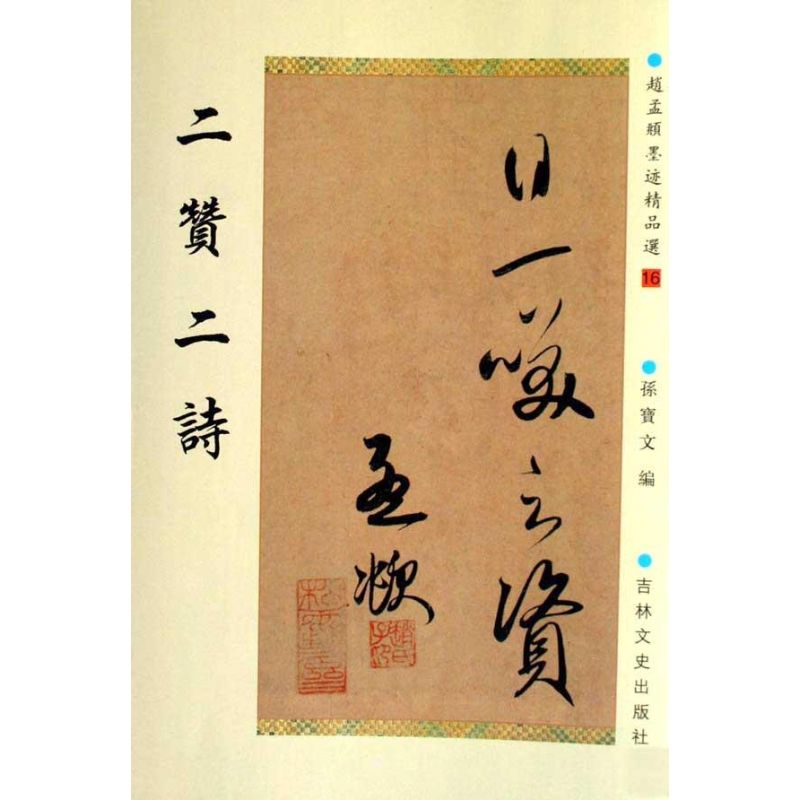 趙孟頫墨迹精品選
16
孫寶文 編
吉林文史出版社
日一笑之資
孟頫
趙氏子昂
二贊二詩